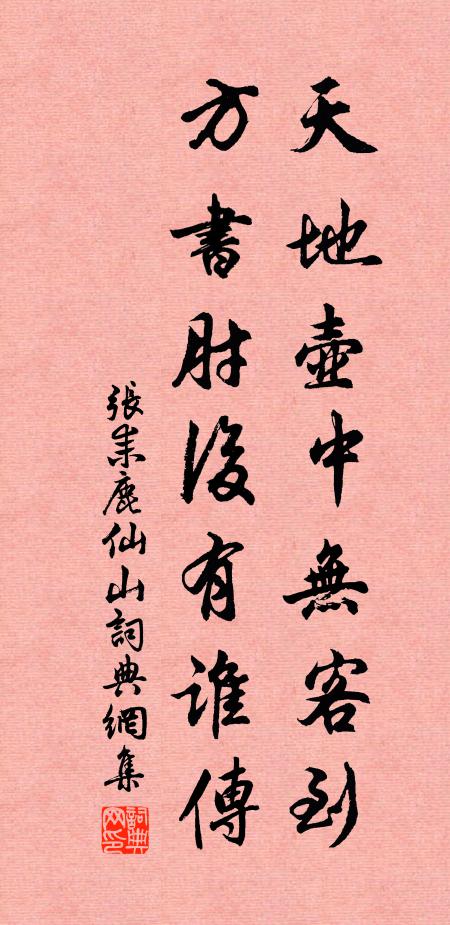 天地壺中無客到
方書肘後有誰傳
張耒鹿仙山詞典網集
詞典網印